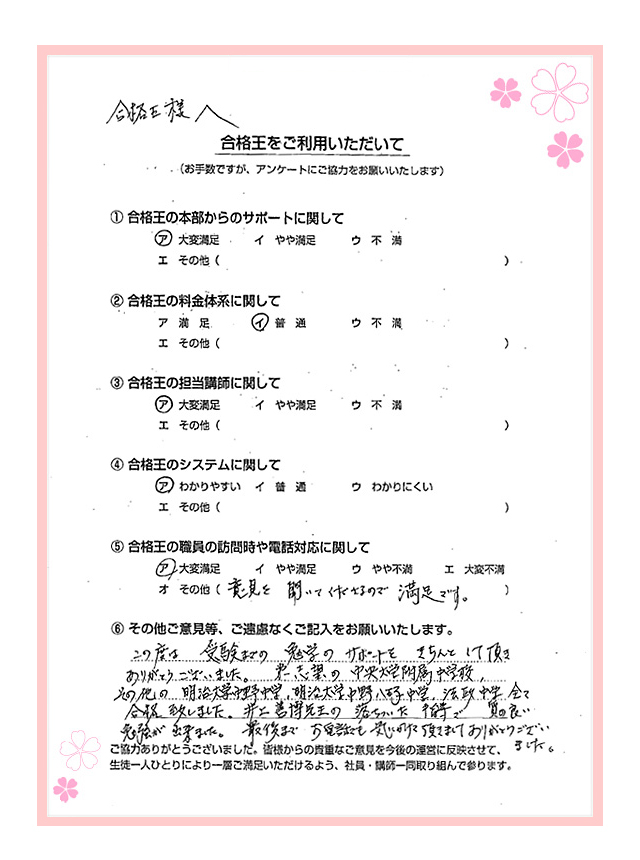 合格王様へ
合格王をご利用いただいて
(お手数ですが、アンケートにご協力をお願いいたします)
① 合格王の本部からのサポートに関して
ア 大変満足 イ やや満足 ウ 不 満
エ その他 ( )
② 合格王の料金体系に関して
ア 満 足 イ 普 通 ウ 不 満
エ その他 ( )
③ 合格王の担当講師に関して
ア 大変満足 イ やや満足 ウ 不 満
エ その他 ( )
④ 合格王のシステムに関して
ア わかりやすい イ 普 通 ウ わかりにくい
エ その他 ( )
⑤ 合格王の職員の訪問時や電話対応に関して
ア 大変満足 イ やや満足 ウ やや不満 エ 大変不満
オ その他 ( 意見を聞いてくださるので満足です。 )
⑥ その他ご意見等、ご遠慮なくご記入をお願いいたします。
この度は 受験までの 勉学の サポートを きちんとして頂き
ありがとうございました。第一志望の 中央大学附属中学校、
その他の 明治大学中野中学、明治大学中野八王子中学、法政中学 全て
合格 致しました。井上 先生の 落ちついた 指導で 質の良い
勉強が 出来ました。最後まで お電話も 頂きまして ありがとうござい
ました。
ご協力ありがとうございました。皆様からの貴重なご意見を今後の運営に反映させて、
生徒一人ひとりにより一層ご満足いただけるよう、社員・講師一同取り組んで参ります。